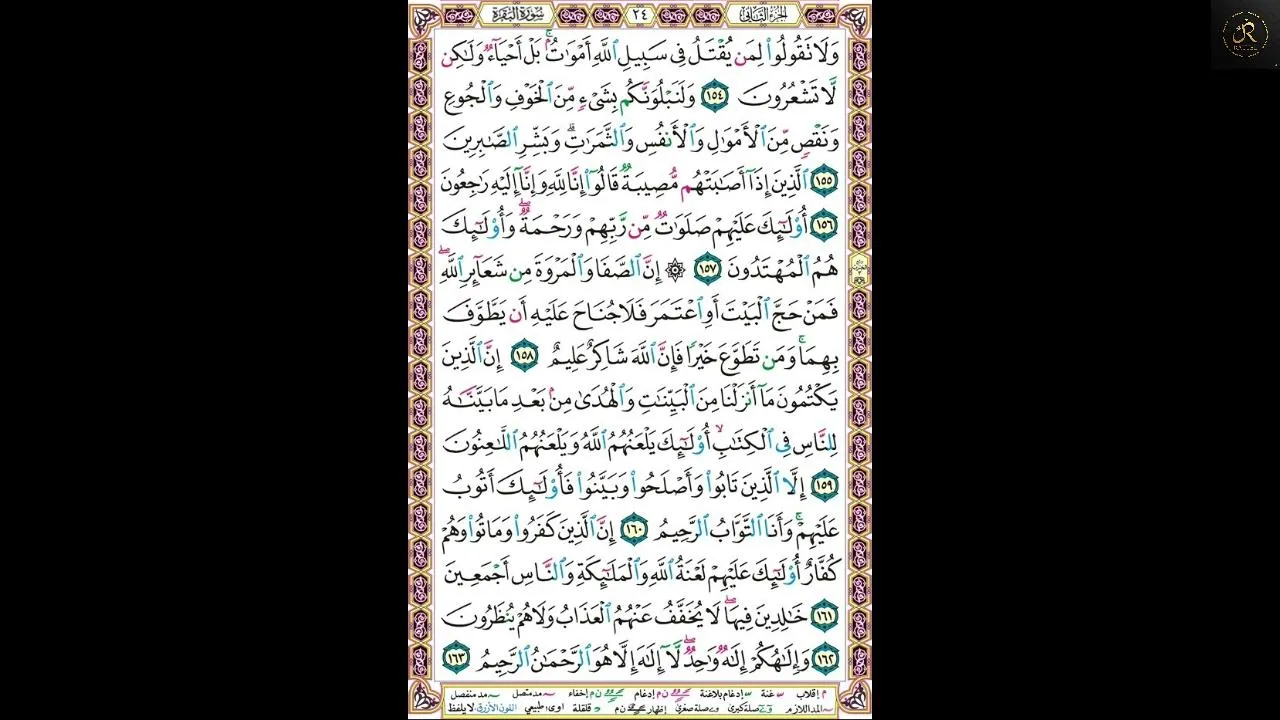 الجزء الثاني ٢٤ سورة البقرة
وَلَا تَقُولُوا۟ لِمَن يُقْتَلُ فِى سَبِيلِ ٱللَّهِ أَمْوَٰتٌۢ ۚ بَلْ أَحْيَآءٌ وَلَـٰكِن
لَّا تَشْعُرُونَ ١٥٤ وَلَنَبْلُوَنَّكُم بِشَىْءٍ مِّنَ ٱلْخَوْفِ وَٱلْجُوعِ
وَنَقْصٍ مِّنَ ٱلْأَمْوَٰلِ وَٱلْأَنفُسِ وَٱلثَّمَرَٰتِ ۗ وَبَشِّرِ ٱلصَّـٰبِرِينَ
١٥٥ ٱلَّذِينَ إِذَآ أَصَـٰبَتْهُم مُّصِيبَةٌ قَالُوٓا۟ إِنَّا لِلَّهِ وَإِنَّآ إِلَيْهِ رَٰجِعُونَ
١٥٦ أُو۟لَـٰٓئِكَ عَلَيْهِمْ صَلَوَٰتٌ مِّن رَّبِّهِمْ وَرَحْمَةٌ ۖ وَأُو۟لَـٰٓئِكَ
هُمُ ٱلْمُهْتَدُونَ ١٥٧ ۞ إِنَّ ٱلصَّفَا وَٱلْمَرْوَةَ مِن شَعَآئِرِ ٱللَّهِ ۖ
فَمَنْ حَجَّ ٱلْبَيْتَ أَوِ ٱعْتَمَرَ فَلَا جُنَاحَ عَلَيْهِ أَن يَطَّوَّفَ
بِهِمَا ۚ وَمَن تَطَوَّعَ خَيْرًا فَإِنَّ ٱللَّهَ شَاكِرٌ عَلِيمٌ ١٥٨ إِنَّ ٱلَّذِينَ
يَكْتُمُونَ مَآ أَنزَلْنَا مِنَ ٱلْبَيِّنَـٰتِ وَٱلْهُدَىٰ مِنۢ بَعْدِ مَا بَيَّنَّـٰهُ
لِلنَّاسِ فِى ٱلْكِتَـٰبِ ۙ أُو۟لَـٰٓئِكَ يَلْعَنُهُمُ ٱللَّهُ وَيَلْعَنُهُمُ ٱللَّـٰعِنُونَ
١٥٩ إِلَّا ٱلَّذِينَ تَابُوا۟ وَأَصْلَحُوا۟ وَبَيَّنُوا۟ فَأُو۟لَـٰٓئِكَ أَتُوبُ
عَلَيْهِمْ ۚ وَأَنَا ٱلتَّوَّابُ ٱلرَّحِيمُ ١٦٠ إِنَّ ٱلَّذِينَ كَفَرُوا۟ وَمَاتُوا۟ وَهُمْ
كُفَّارٌ أُو۟لَـٰٓئِكَ عَلَيْهِمْ لَعْنَةُ ٱللَّهِ وَٱلْمَلَـٰٓئِكَةِ وَٱلنَّاسِ أَجْمَعِينَ
١٦١ خَـٰلِدِينَ فِيهَا ۖ لَا يُخَفَّفُ عَنْهُمُ ٱلْعَذَابُ وَلَا هُمْ يُنظَرُونَ
١٦٢ وَإِلَـٰهُكُمْ إِلَـٰهٌ وَٰحِدٌ ۖ لَّآ إِلَـٰهَ إِلَّا هُوَ ٱلرَّحْمَـٰنُ ٱلرَّحِيمُ ١٦٣
م إقلاب غنة إدغام بلاغنة ن م إدغام ن م إخفاء مد متصل مد منفصل
المد اللازم صلة كبرى صلة صغرى إظهار ن م قلقلة اوى: طبيعي اللون الأزرق لا يلفظ